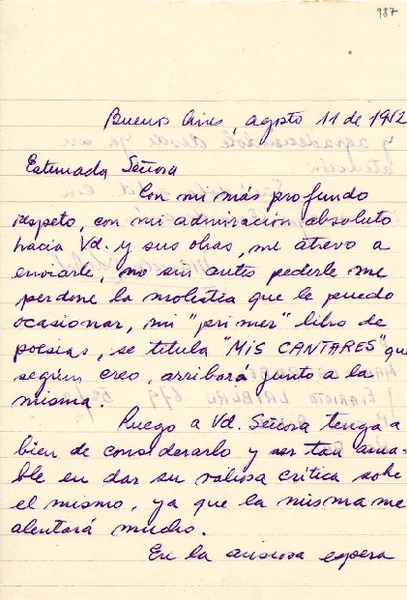 987
Buenos Aires, agosto 11 de 1952
Estimada Señora
Con mi más profundo
respeto, con mi admiración absoluto
hacia Vd. y sus obras, me atrevo a
enviarle, no sin antes pederle me
perdone la molestia que le puedo
ocasionar, mi "primer" libro de
poesias, se titula "MIS CANTARES" que
según creo, arribará junto a la
misma.
Ruego a Vd. Señora tenga a
bien de considerarlo y ser tan ama-
ble en dar su valiosa crítica sobre
el mismo, ya que la misma me
alentará mucho.
En la ansiosa espera